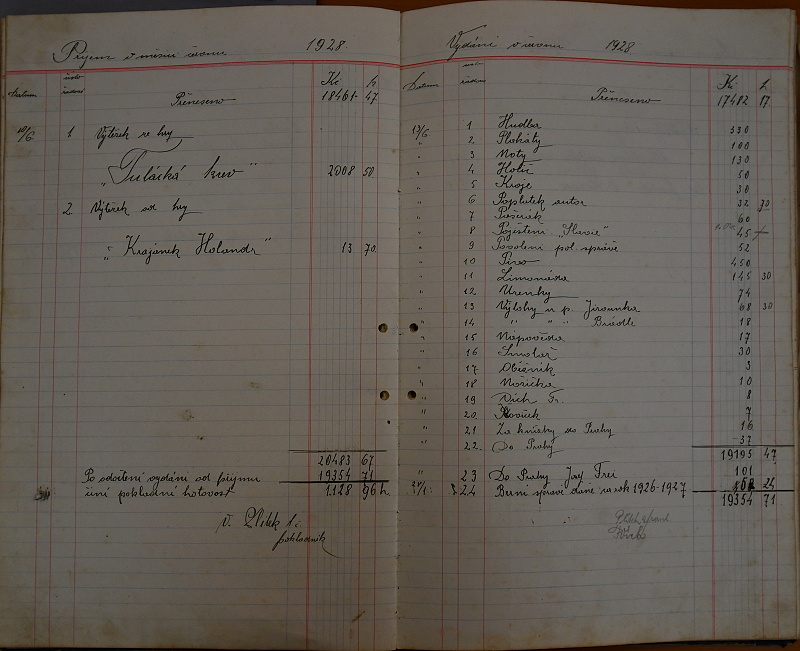 Příjem v měsíci červnu 1928.
Datum číslo Kč h
Přeneseno 18461 47
10/6 1. Výtěžek ze hry
„Tulácká krev" 2008 50
2. Výtěžek od hry
„Krajánek Holandr" 13 70
20483 67
Po odečtení vydání od příjmu 19354 71
činí pokladní hotovost 1128 96 h.
pokladník
Vydání v červnu 1928.
Datum Kč h
Přeneseno 17482 17
13/6 1 Hudba 330
" 2 Plakáty 100
" 3 Noty 130
" 4 Holič 50
5 Kroje 30
" 6 Poplatek autor 32 70
" 7 60
" 8 Pojištění „Slavie" 45
" 9 Povolení pol. správě 52
" 10 Pivo 450
" 11 Limonáda 145 30
" 12 Uzenky 74
" 13 Výlohy u p. Jirounka 68 30
" 14 " " " Brádle 18
" 15 Nápověda 17
" 16 30
" 17 Obězník 3
" 18 10
" 19 Fr. 8
" 20. 7
" 21 Za knížky do Prahy 16
" 22. Do Prahy 37
19195 47
" 23 Do Prahy Josef Frei 101
24 Berní správě daně za rok 1926-1927 24
19354 71